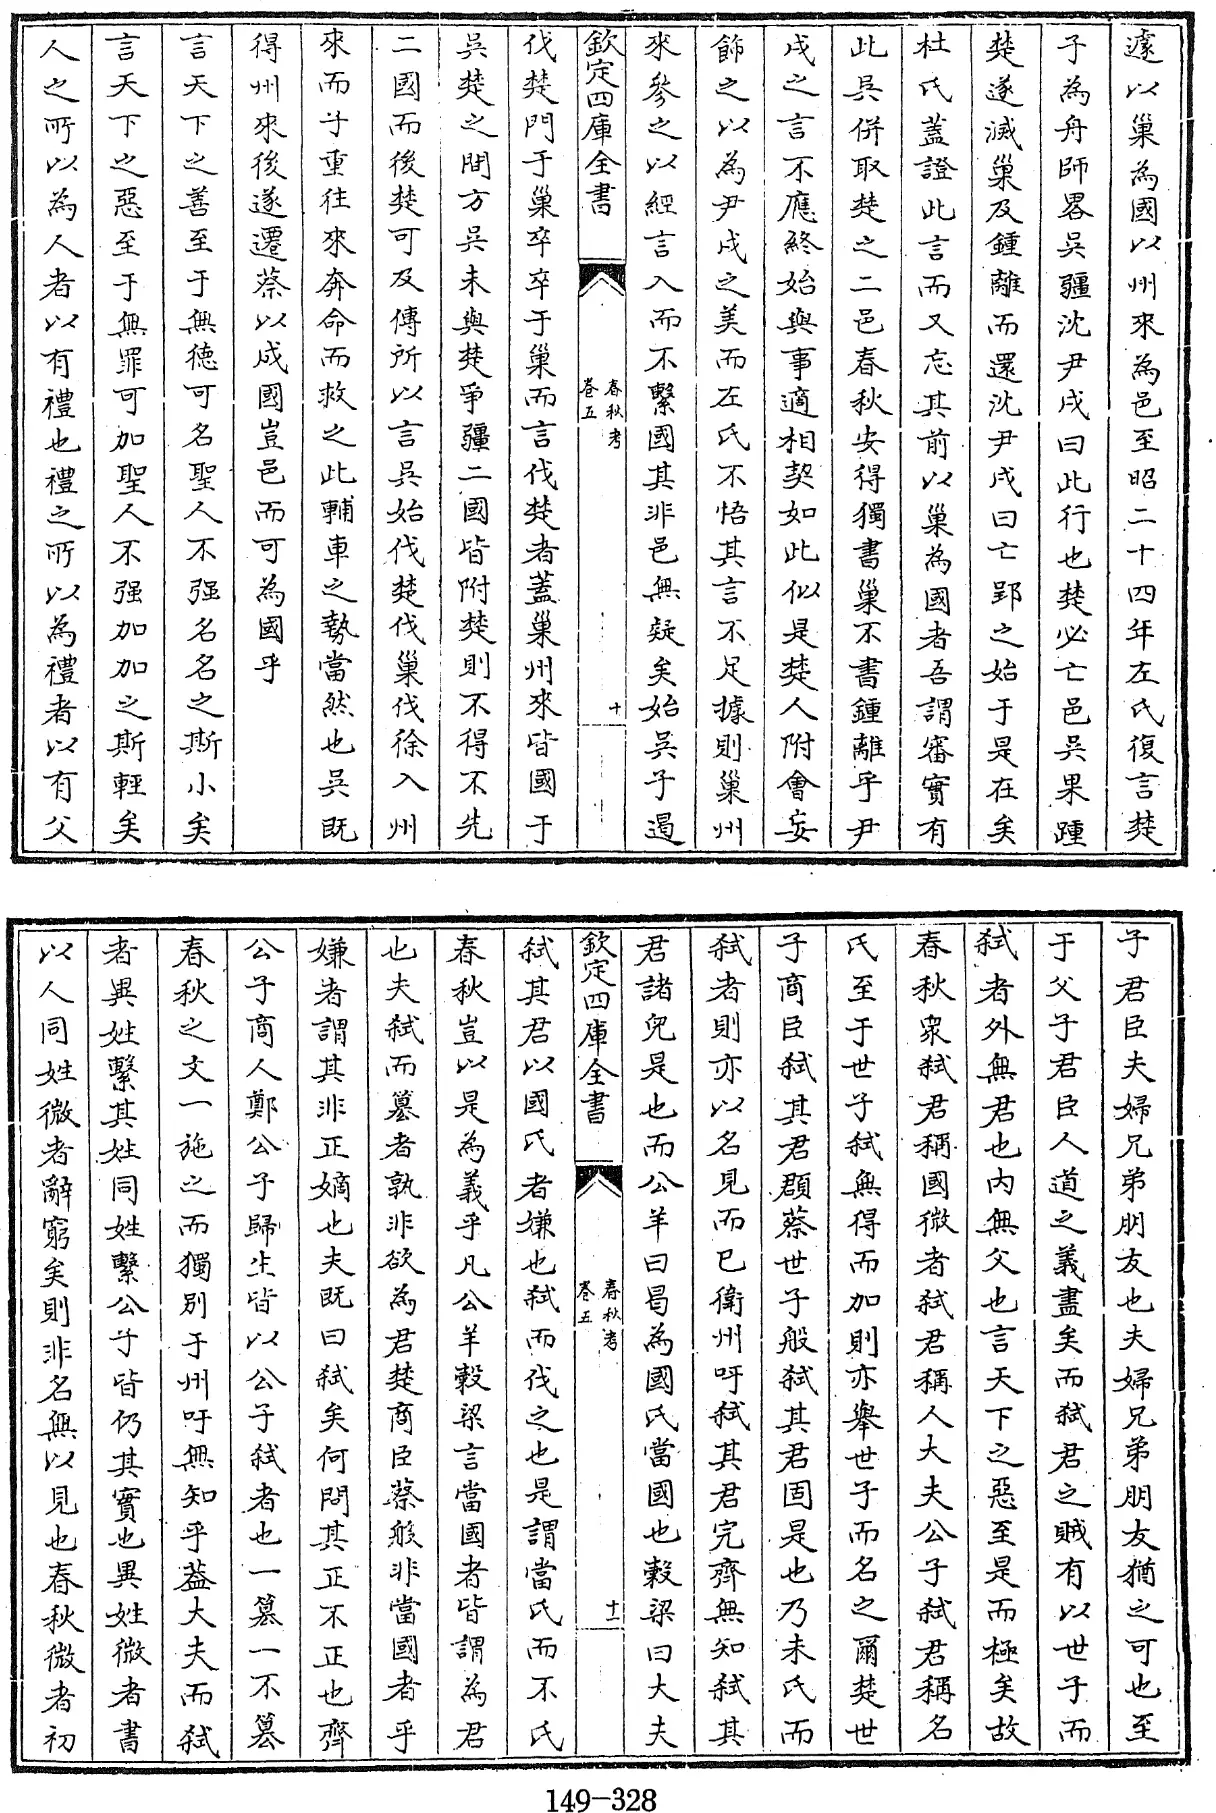 遽以巢為國以州來為邑至昭二十四年左氏復言楚
子為舟師畧吳疆沈尹戌曰此行也楚必亡邑吳果踵
楚遂滅巢及鍾離而還沈尹戌曰亡郢之始于是在矣
杜氏蓋證此言而又忘其前以巢為國者吾謂審實有
此吳併取楚之二邑春秋安得獨書巢不書鍾離乎尹
戌之言不應終始與事適相契如此似是楚人附會妄
飾之以為尹戌之美而左氏不悟其言不足據則巢州
來參之以經言入而不繫國其非邑無疑矣始吳子遏
欽定四庫全書
春秋考
卷五
十
伐楚門于巢卒卒于巢而言伐楚者蓋巢州來皆國于
吳楚之間方吳未與楚爭疆二國皆附楚則不得不先
二國而後楚可及傳所以言吳始伐楚伐巢伐徐入州
來而子重往來奔命而救之此輔車之勢當然也吳既
得州來後遂遷蔡以成國豈邑而可為國乎
言天下之善至于無德可名聖人不强名名之斯小矣
言天下之惡至于無罪可加聖人不强加加之斯輕矣
人之所以為人者以有禮也禮之所以為禮者以有父
子君臣夫婦兄弟朋友也夫婦兄弟朋友猶之可也至
于父子君臣人道之義盡矣而弑君之賊有以世子而
弑者外無君也內無父也言天下之惡至是而極矣故
春秋衆弑君稱國微者弑君稱人大夫公子弑君稱名
氏至于世子弑無得而加則亦舉世子而名之爾楚世
子商臣弑其君頵蔡世子般弑其君固是也乃未氏而
弑者則亦以名見而已衛州吁弑其君完齊無知弑其
君諸兒是也而公羊曰曷為國氏當國也穀梁曰大夫
欽定四庫全書
春秋考
卷五
十一
弑其君以國氏者嫌也弑而代之也是謂當氏而不氏
春秋豈以是為義乎凡公羊穀梁言當國者皆謂為君
也夫弑而簒者孰非欲為君楚商臣蔡般非當國者乎
嫌者謂其非正嫡也夫既曰弑矣何問其正不正也齊
公子商人鄭公子歸生皆以公子弑者也一簒一不簒
春秋之文一施之而獨別于州吁無知乎葢大夫而弑
者異姓繫其姓同姓繫公子皆仍其實也異姓微者書
以人同姓微者辭窮矣則非名無以見也春秋微者初
149-328